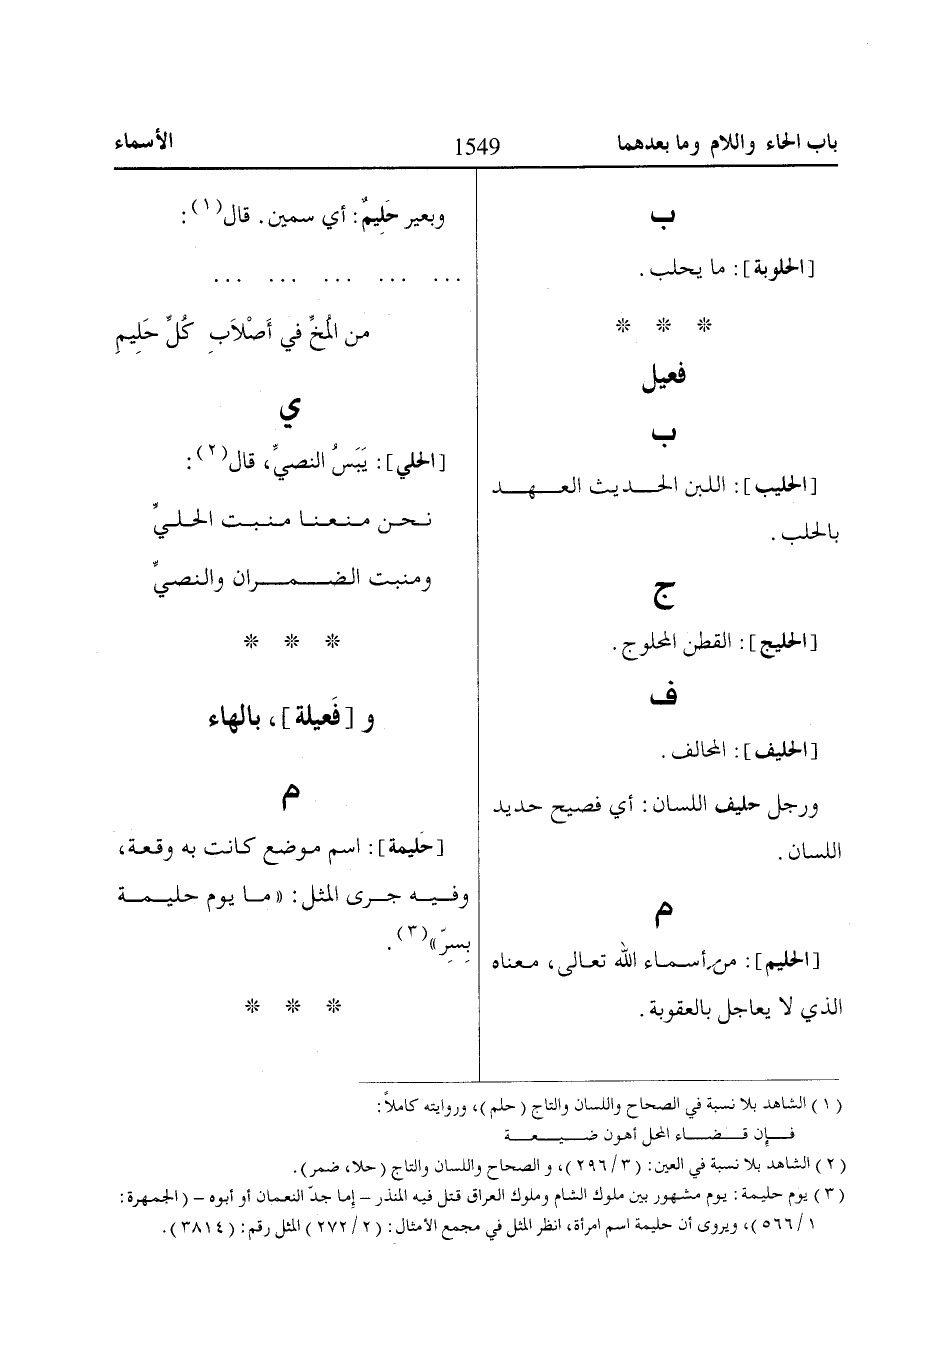 باب الحاء واللام وما بعدهما
1549
الأسماء
ب
[الحلوبة]: ما يحلب.
* * *
فعيل
ب
[الحليب]: اللبن الحديث العهد
بالحلب.
ج
[الحليج]: القطن المحلوج.
ف
[الحليف]: المحالف.
ورجل حليف اللسان: أي فصيح حديد
اللسان.
م
[الحليم]: من أسماء الله تعالى، معناه
الذي لا يعاجل بالعقوبة.
وبعير حَلِيمٌ: أي سمين. قال(١):
... ... ... ... ...
من المُخِّ في أَصْلاَبِ كُلِّ حَلِيمِ
ي
[الحلي]: يَبَسُ النصيِّ، قال(٢):
نحن منعنا منبت الحليِّ
ومنبت الضمران والنصيِّ
* * *
و [فَعيلة]، بالهاء
م
[حَليمة]: اسم موضع كانت به وقعة،
وفيه جرى المثل: «ما يوم حليمة
بِسِرِّ»(٣).
* * *
(١) الشاهد بلا نسبة في الصحاح واللسان والتاج (حلم)، وروايته كاملاً:
فإن قضاء المحل أهون ضيعة
(٢) الشاهد بلا نسبة في العين: (٢٩٦/٣)، و الصحاح واللسان والتاج (حلا، ضمر).
(٣) يوم حليمة: يوم مشهور بين ملوك الشام وملوك العراق قتل فيه المنذر – إما جدّ النعمان أو أبوه – (الجمهرة:
٥٦٦/١)، ويروى أن حليمة اسم امرأة، انظر المثل في مجمع الأمثال: (٢٧٢/٢) المثل رقم: (٣٨١٤).